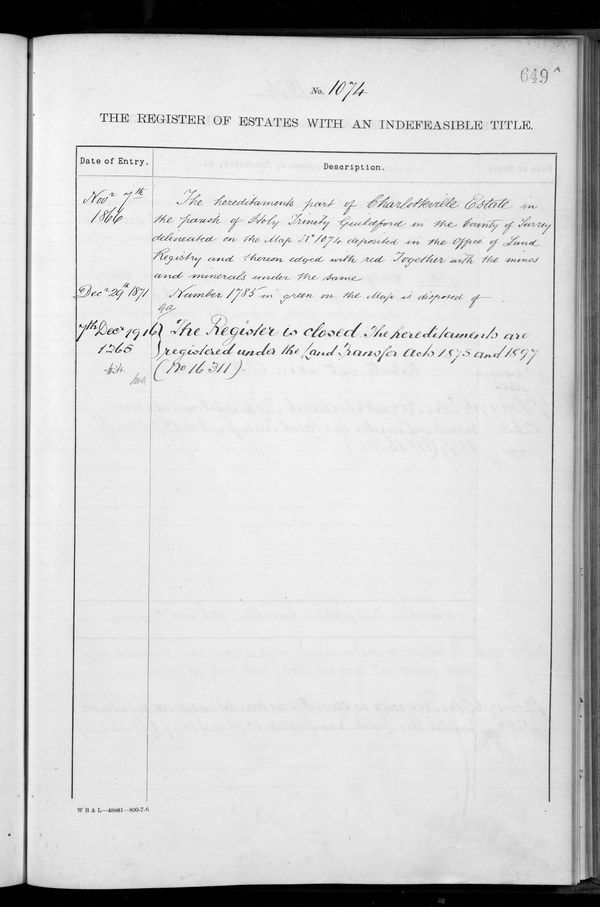 649^
No. 1074
THE REGISTER OF ESTATES WITH AN INDEFEASIBLE TITLE.
Date of Entry.
Description.
Novr 7th
1866
The hereditaments part of Charlotteville Estate in
the parish of Holy Trinity Guildford in the County of Surrey
delineated on the Map No 1074 deposited in the Office of Land
Registry and thereon edged with red Together with the mines
and minerals under the same
Decr 29th 1871
Number 1785 in green on the Map is disposed of
7th Decr 1916
1265
The Register is closed. The hereditaments are
registered under the Land Transfer Acts 1875 and 1897
(No 16311).
W B & L—49881—800-7-6